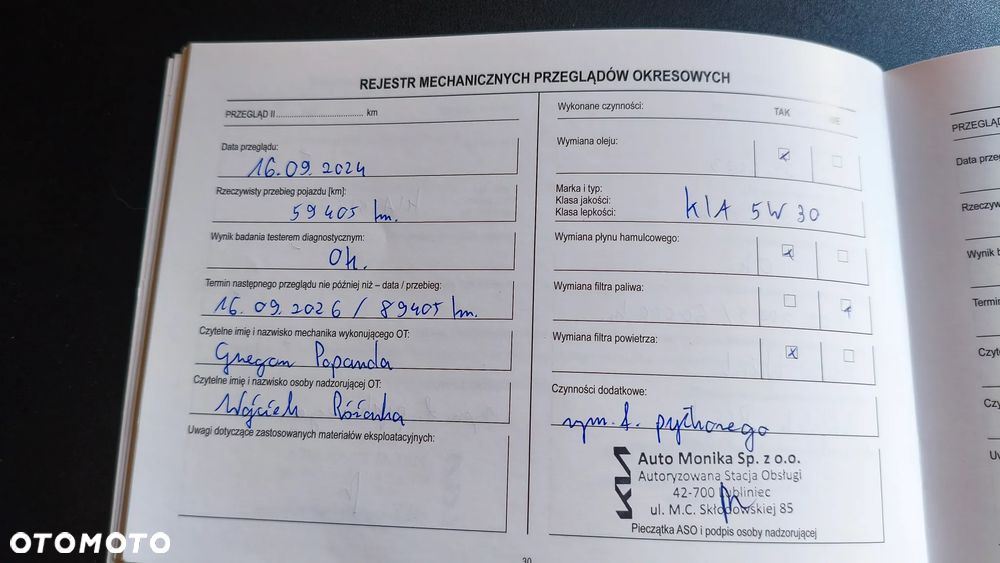 REJESTR MECHANICZNYCH PRZEGLĄDÓW OKRESOWYCH
PRZEGLĄD II .................................. km
Data przeglądu:
16.09.2024
Rzeczywisty przebieg pojazdu [km]:
59405 km.
Wynik badania testerem diagnostycznym:
Ok.
Termin następnego przeglądu nie później niż – data / przebieg:
16.09.2026 / 89405 km.
Czytelne imię i nazwisko mechanika wykonującego OT:
Gregan Popanda
Czytelne imię i nazwisko osoby nadzorującej OT:
Wójciek Różanka
Uwagi dotyczące zastosowanych materiałów eksploatacyjnych:
Wykonane czynności:
TAK
NIE
Wymiana oleju:
Marka i typ:
Klasa jakości:
Klasa lepkości:
KIA 5W30
Wymiana płynu hamulcowego:
Wymiana filtra paliwa:
Wymiana filtra powietrza:
Czynności dodatkowe:
wym. f. pyłkowego
KIA
Auto Monika Sp. z o.o.
Autoryzowana Stacja Obsługi
42-700 Lubliniec
ul. M.C. Skłodowskiej 85
Pieczątka ASO i podpis osoby nadzorującej
30
PRZEGLĄD
Data prze
Rzeczyw
Wynik b
Termin
Czyte
Czy
Uw
OTOMOTO